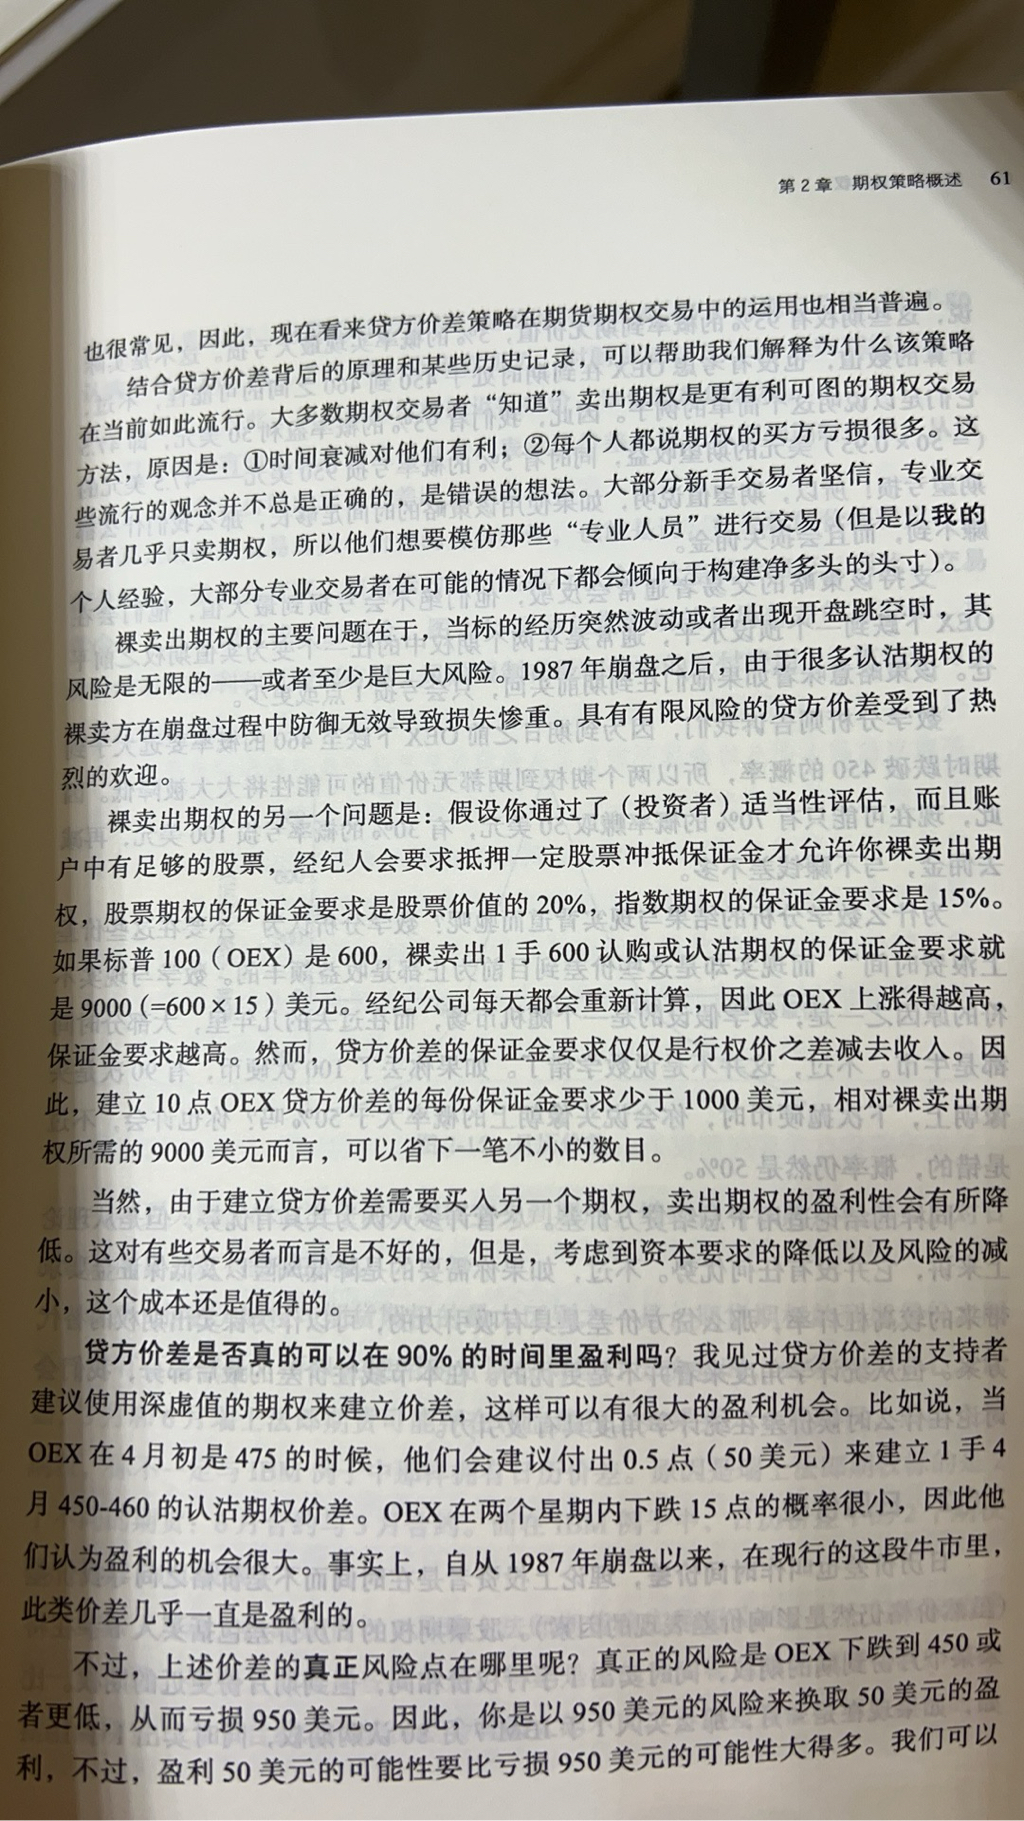 第2章 期权策略概述 61
也很常见，因此，现在看来贷方价差策略在期货期权交易中的运用也相当普遍。
结合贷方价差背后的原理和某些历史记录，可以帮助我们解释为什么该策略
在当前如此流行。大多数期权交易者“知道”卖出期权是更有利可图的期权交易
方法，原因是：①时间衰减对他们有利；②每个人都说期权的买方亏损很多。这
些流行的观念并不总是正确的，是错误的想法。大部分新手交易者坚信，专业交
易者几乎只卖期权，所以他们想要模仿那些“专业人员”进行交易（但是以我的
个人经验，大部分专业交易者在可能的情况下都会倾向于构建净多头的头寸）。
裸卖出期权的主要问题在于，当标的经历突然波动或者出现开盘跳空时，其
风险是无限的——或者至少是巨大风险。1987年崩盘之后，由于很多认沽期权的
裸卖方在崩盘过程中防御无效导致损失惨重。具有有限风险的贷方价差受到了热
烈的欢迎。
裸卖出期权的另一个问题是：假设你通过了（投资者）适当性评估，而且账
户中有足够的股票，经纪人会要求抵押一定股票冲抵保证金才允许你裸卖出期
权，股票期权的保证金要求是股票价值的20%，指数期权的保证金要求是15%。
如果标普100（OEX）是600，裸卖出1手600认购或认沽期权的保证金要求就
是9000（=600×15）美元。经纪公司每天都会重新计算，因此OEX上涨得越高，
保证金要求越高。然而，贷方价差的保证金要求仅仅是行权价之差减去收入。因
此，建立10点OEX贷方价差的每份保证金要求少于1000美元，相对裸卖出期
权所需的9000美元而言，可以省下一笔不小的数目。
当然，由于建立贷方价差需要买入另一个期权，卖出期权的盈利性会有所降
低。这对有些交易者而言是不好的，但是，考虑到资本要求的降低以及风险的减
小，这个成本还是值得的。
贷方价差是否真的可以在90%的时间里盈利吗？我见过贷方价差的支持者
建议使用深虚值的期权来建立价差，这样可以有很大的盈利机会。比如说，当
OEX在4月初是475的时候，他们会建议付出0.5点（50美元）来建立1手4
月450-460的认沽期权价差。OEX在两个星期内下跌15点的概率很小，因此他
们认为盈利的机会很大。事实上，自从1987年崩盘以来，在现行的这段牛市里，
此类价差几乎一直是盈利的。
不过，上述价差的真正风险点在哪里呢？真正的风险是OEX下跌到450或
者更低，从而亏损950美元。因此，你是以950美元的风险来换取50美元的盈
利，不过，盈利50美元的可能性要比亏损950美元的可能性大得多。我们可以